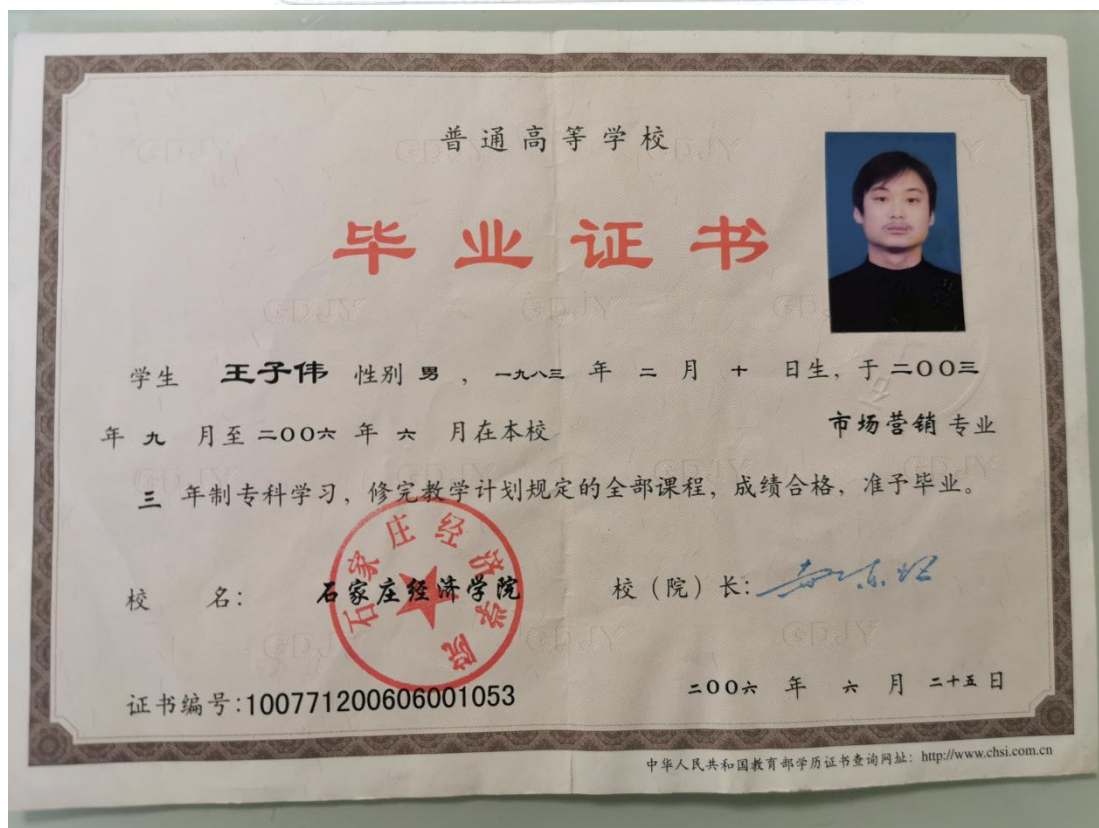 普通高等学校
毕业证书
学生 王子伟 性别 男 ，一九八三 年 二 月 十 日生，于 二〇〇三
年 九 月至 二〇〇六 年 六 月在本校 市场营销 专业
三 年制专科学习，修完教学计划规定的全部课程，成绩合格，准予毕业。
校 名： 石家庄经济学院 校（院）长：
石家庄经济学院
证书编号:100771200606001053 二〇〇六 年 六 月 二十五 日
中华人民共和国教育部学历证书查询网址：http://www.chsi.com.cn